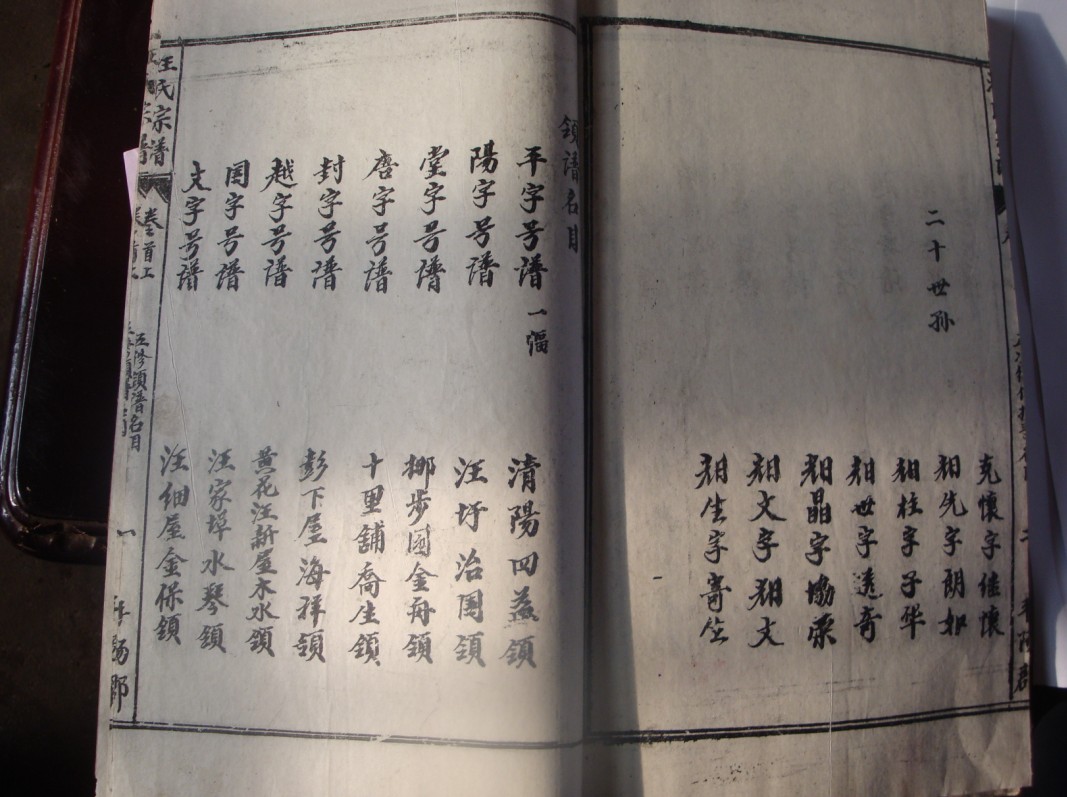 二十世孙
克懷字继懷
相先字朗如
相柱字子华
相世字逸奇
相晶字协荣
相文字相文
相生字寄生
領譜名目
平字号譜一幅 清陽四益領
陽字号譜 汪圩治國領
堂字号譜 挪步園金舟領
唐字号譜 十里舖喬生領
封字号譜 彭下屋海祥領
越字号譜 黄花汪新屋木水領
国字号譜 汪家埠水琴領
文字号譜 汪细屋金保領
汪氏宗譜
卷首上
五修領譜名目
一
平陽郡